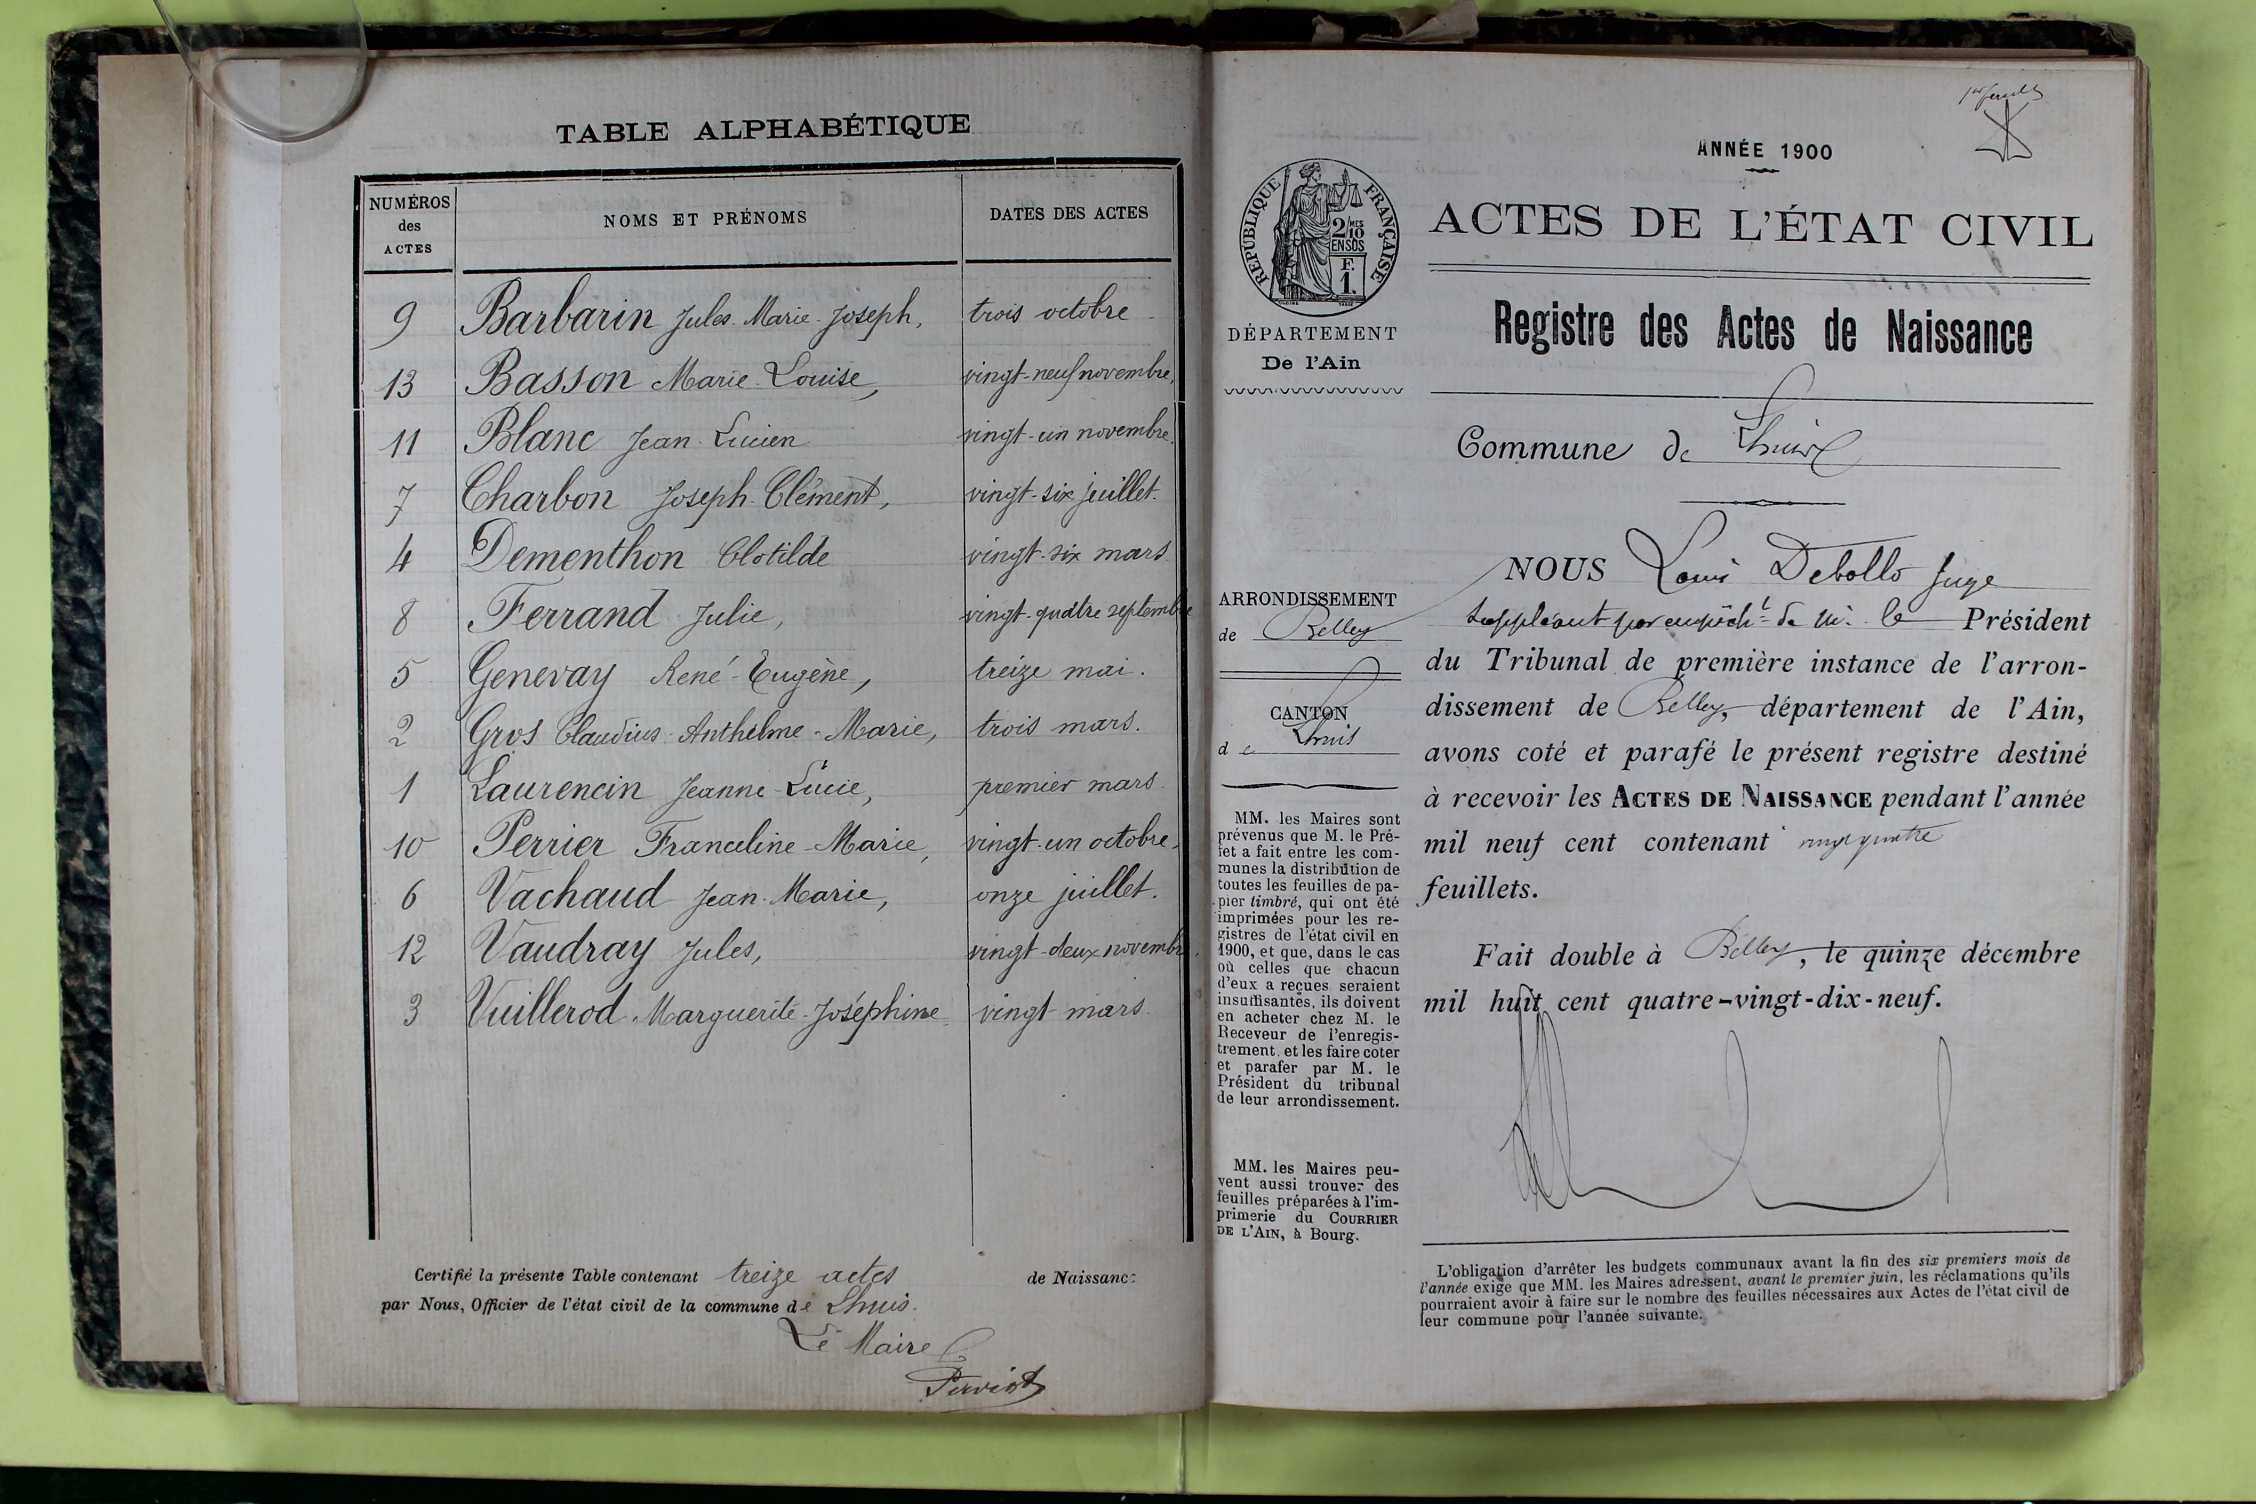 TABLE ALPHABÉTIQUE
NUMÉROS
des
ACTES
NOMS ET PRÉNOMS
DATES DES ACTES
9 Barbarin Jules Marie Joseph, trois octobre
13 Basson Marie Louise, vingt-neuf novembre,
11 Blanc Jean Lucien vingt-un novembre.
7 Charbon Joseph Clément, vingt-six juillet.
4 Dementhon Clotilde vingt-six mars
8 Ferrand Julie, vingt-quatre septembre
5 Genevay René-Eugène, treize mai.
2 Gros Claudius-Anthelme-Marie, trois mars.
1 Laurencin Jeanne-Lucie, premier mars.
10 Perrier Franceline-Marie, vingt-un octobre.
6 Vachaud Jean-Marie, onze juillet.
12 Vaudray Jules, vingt-deux novembre
3 Vuillerod Marguerite-Joséphine vingt mars.
Certifié la présente Table contenant treize actes de Naissance
par Nous, Officier de l'état civil de la commune de Lhuis.
Le Maire
ANNÉE 1900
RÉPUBLIQUE FRANÇAISE
2/10 MES
EN SUS
F.
1.
DÉPARTEMENT
De l'Ain
ARRONDISSEMENT
de Belley
CANTON
de Lhuis
MM. les Maires sont
prévenus que M. le Pré-
fet a fait entre les com-
munes la distribution de
toutes les feuilles de pa-
pier timbré, qui ont été
imprimées pour les re-
gistres de l'état civil en
1900, et que, dans le cas
où celles que chacun
d'eux a reçues seraient
insuffisantes, ils doivent
en acheter chez M. le
Receveur de l'enregis-
trement et les faire coter
et parafer par M. le
Président du tribunal
de leur arrondissement.
MM. les Maires peu-
vent aussi trouver des
feuilles préparées à l'im-
primerie du COURRIER
DE L'AIN, à Bourg.
ACTES DE L'ÉTAT CIVIL
Registre des Actes de Naissance
Commune de Lhuis
NOUS Louis Debollo Juge
suppléant par empêcht de M. le Président
du Tribunal de première instance de l'arron-
dissement de Belley, département de l'Ain,
avons coté et parafé le présent registre destiné
à recevoir les ACTES DE NAISSANCE pendant l'année
mil neuf cent contenant vingt quatre
feuillets.
Fait double à Belley, le quinze décembre
mil huit cent quatre-vingt-dix-neuf.
L'obligation d'arrêter les budgets communaux avant la fin des six premiers mois de
l'année exige que MM. les Maires adressent, avant le premier juin, les réclamations qu'ils
pourraient avoir à faire sur le nombre des feuilles nécessaires aux Actes de l'état civil de
leur commune pour l'année suivante.